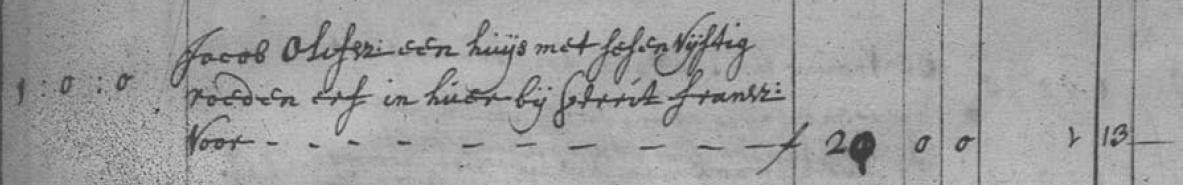 Jacob Olofsz: een huijs met sesenvijftig
1 : 0 : 0 roeden erf in huer bij Gerrit Fransz:
Voor - - - - - - - - - f 20 0 0 1 13 —